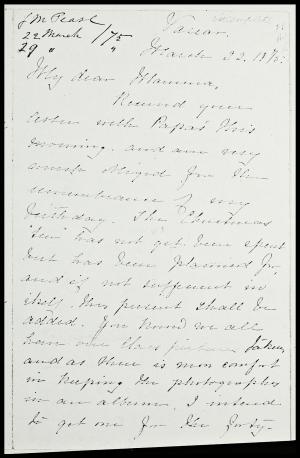 J M Pease
22 March /75
29 " "
Vassar.
March 22. 1875.
My dear Mamma,
Received your
letter with Papa's this
morning. and am very
much obliged for the
remembrance of my
birthday. The Christmas
"Ten" has not yet been spent
but has been planned for
and if not sufficient in
itself, this present shall be
added. You know we all
have our Class pictures taken,
and as there is more comfort
in keeping the photographs
in an album, I intend
to get one for the forty-